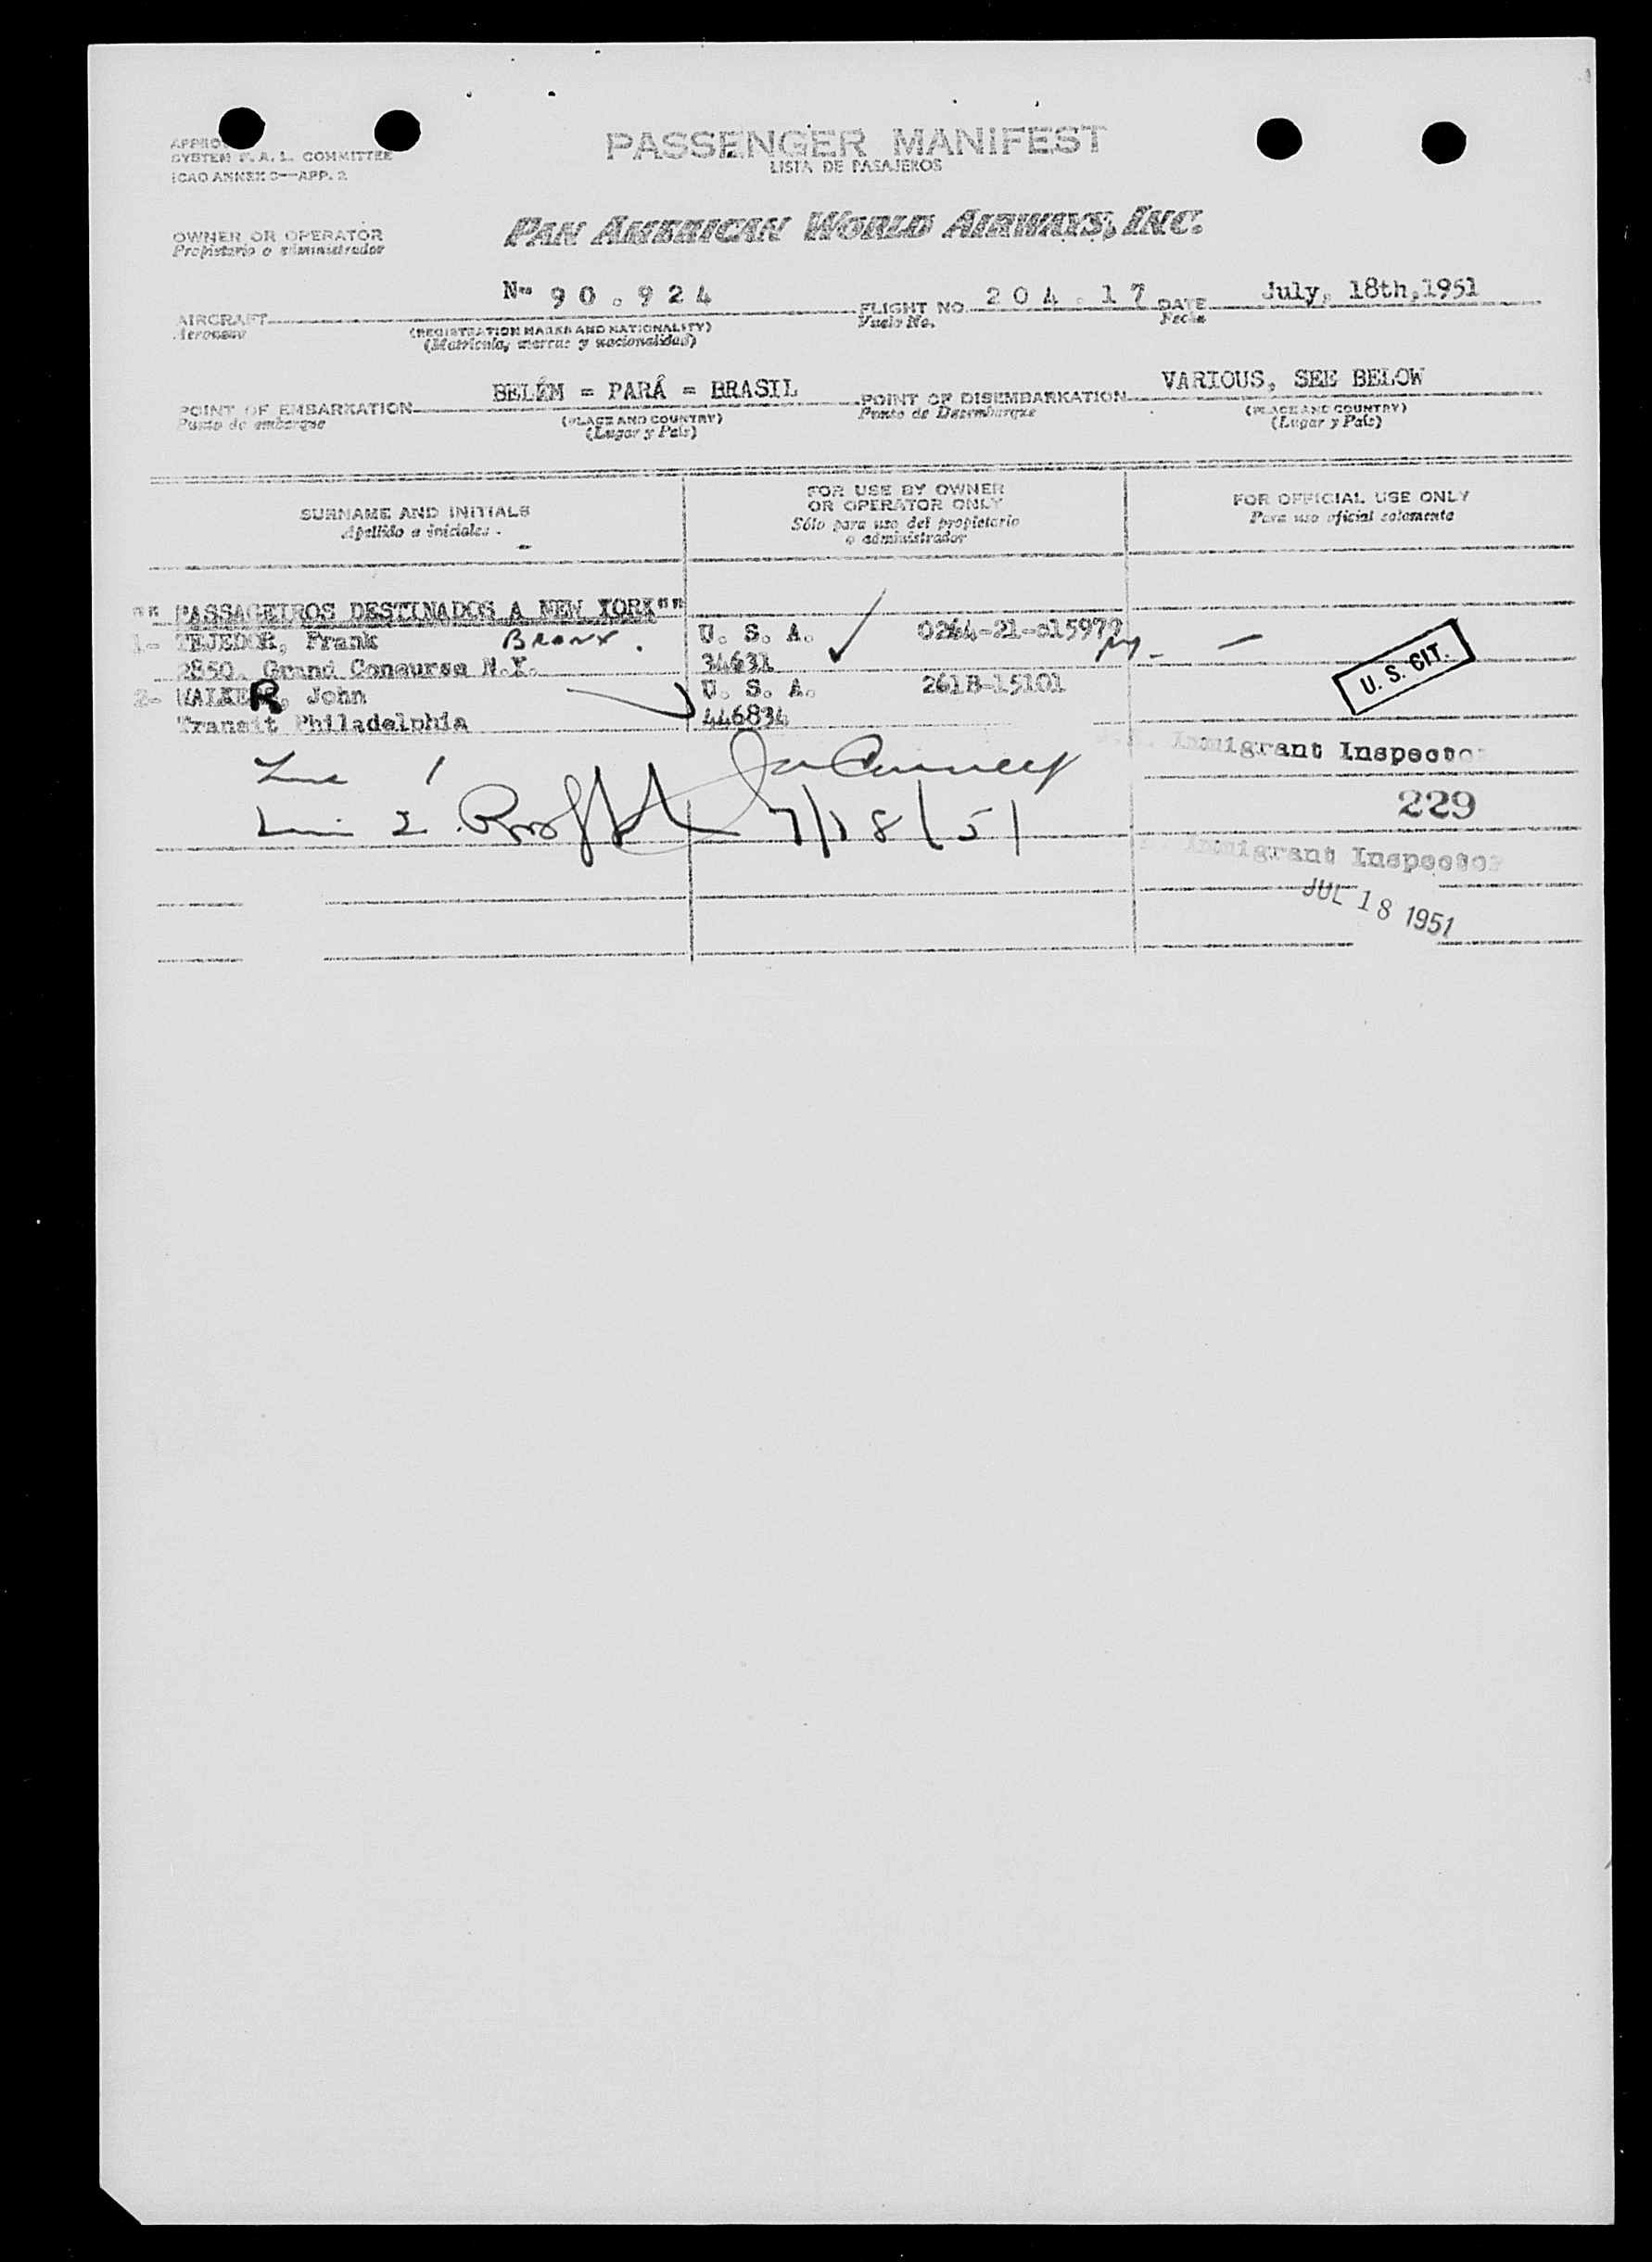 PASSENGER MANIFEST
LISTA DE PASAJEROS
SYSTEM F. A. L. COMMITTEE
ICAO ANNEX 9—APP. 2
OWNER OR OPERATOR
Propietario o administrador
PAN AMERICAN WORLD AIRWAYS, INC.
AIRCRAFT N- 90.924 FLIGHT NO. 204.17 DATE July, 18th,1951
Aeronave (REGISTRATION MARKS AND NATIONALITY) Vuelo No. Fecha
(Matrícula, marcas y nacionalidad)
POINT OF EMBARKATION BELÉM = PARÁ = BRASIL POINT OF DISEMBARKATION VARIOUS, SEE BELOW
Punto de embarque (PLACE AND COUNTRY) Punto de Desembarque (PLACE AND COUNTRY)
(Lugar y País) (Lugar y País)
SURNAME AND INITIALS FOR USE BY OWNER OR OPERATOR ONLY FOR OFFICIAL USE ONLY
Apellido e iniciales Sólo para uso del propietario o administrador Para uso oficial solamente
"" PASSAGEIROS DESTINADOS A NEW YORK""
1- TEJEDOR, Frank BRONX. U. S. A. 0264-21-
2850. Grand Concurse N.Y. 34631
U. S. CIT.
2- WALKER, John U. S. A. 261B-15101
Transit Philadelphia 446834
Immigrant Inspector
Line 1
229
Line 2 7/18/51
Immigrant Inspector
JUL 18 1951